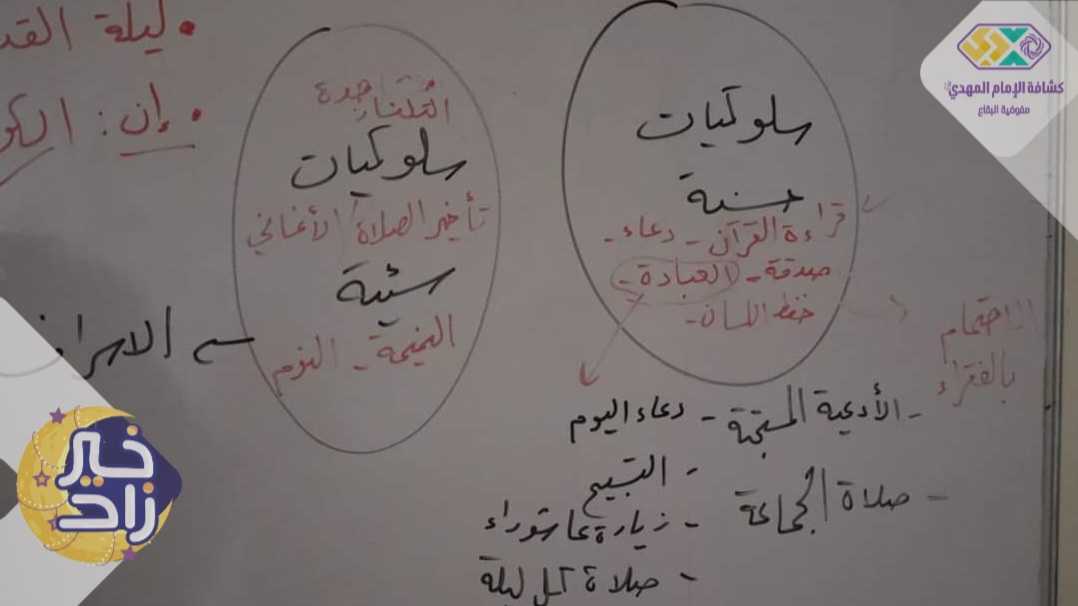 كشافة الإمام المهدي
مفوضية البقاع
ليلة القد
إن: الكو
سلوكيات
حسنة
قراءة القرآن - دعاء -
صدقة - العبادة -
حفظ اللسان -
الاهتمام
بالفقراء
سلوكيات
تأخير الصلاة الأغاني
سيئة
النميمة - النوم
الاسراف
- الأدعية المستحبة - دعاء اليوم
- التسبيح
- صلاة الجماعة
- زيارة عاشوراء
- صلاة كل ليلة
خير
زاد